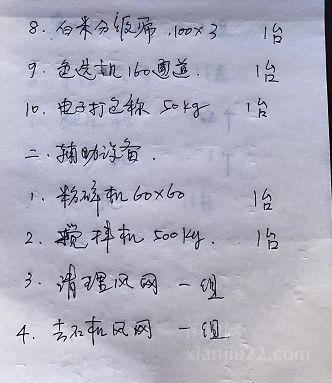 8. 白米分级筛 100×3 1台
9. 色选机 160通道. 1台
10. 电子打包称 50kg 1台
二. 辅助设备.
1. 粉碎机 60×60 1台
2. 搅拌机 500kg. 1台
3. 清理风网 一组
4. 去石机风网 一组
xianjiu22.com